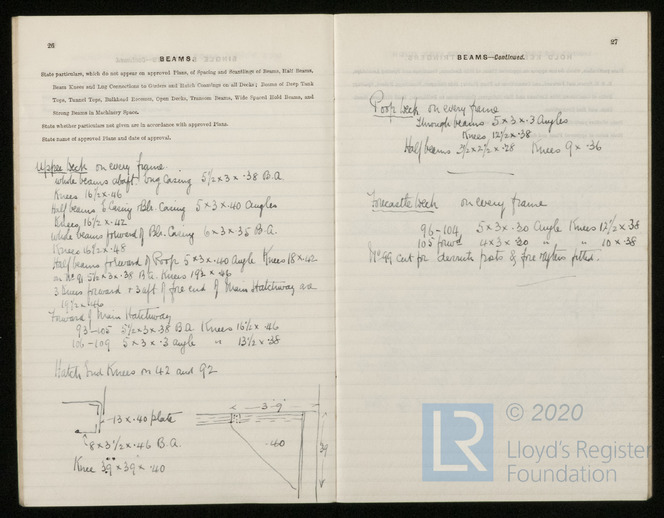 26
BEAMS.
State particulars, which do not appear on approved Plans, of Spacing and Scantlings of Beams, Half Beams,
Beam Knees and Lug Connections to Girders and Hatch Comings on all Decks; Beams of Deep Tank
Tops, Tunnel Tops, Bulkhead Recesses, Open Decks, Transom Beams, Wide Spaced Hold Beams, and
Strong Beams in Machinery Space.
State whether particulars not given are in accordance with approved Plans.
State name of approved Plans and date of approval.
Upper Deck on every frame
whole beams abaft Eng Casing 5½ x 3 x .38 B.A.
Knees 16½ x .46
Half beams E Casing & Blr. Casing 5 x 3 x .40 Angles
Knees 16½ x .42
whole beams forward of Blr. Casing 6 x 3 x .35 B.A.
Knees 16½ x .48
Half beams forward of Poop 5 x 3 x .40 Angle Knees 18 x .42
5½ x 3 x .38 B.A. Knees 19½ x .46
3 Beams forward & 3 aft of fore end of Main Hatchway
19½ x .46
Forward of Main Hatchway
93-105 5½ x 3 x .38 B.A. Knees 16½ x .46
106-109 5 x 3 x .3 angle " 13½ x .38
Hatch End Knees on 42 and 92
13 x .40 plate
8 x 3½ x .46 B.A.
Knee 39 x 39 x .40
3'9"
.40
39
27
BEAMS—Continued.
Poop Deck on every frame
Through beams 5 x 3 x .3 Angles
Knees 12½ x .38
Half beams 3½ x 2½ x .28 Knees 9 x .36
Forecastle Deck on every frame
96-104 5 x 3 x .30 Angle Knees 12½ x .38
105 forwd 4 x 3 x .30 " " 10 x .38
No 99 cut for derrick posts & fore fitted.
LR
© 2020
Lloyd's Register
Foundation